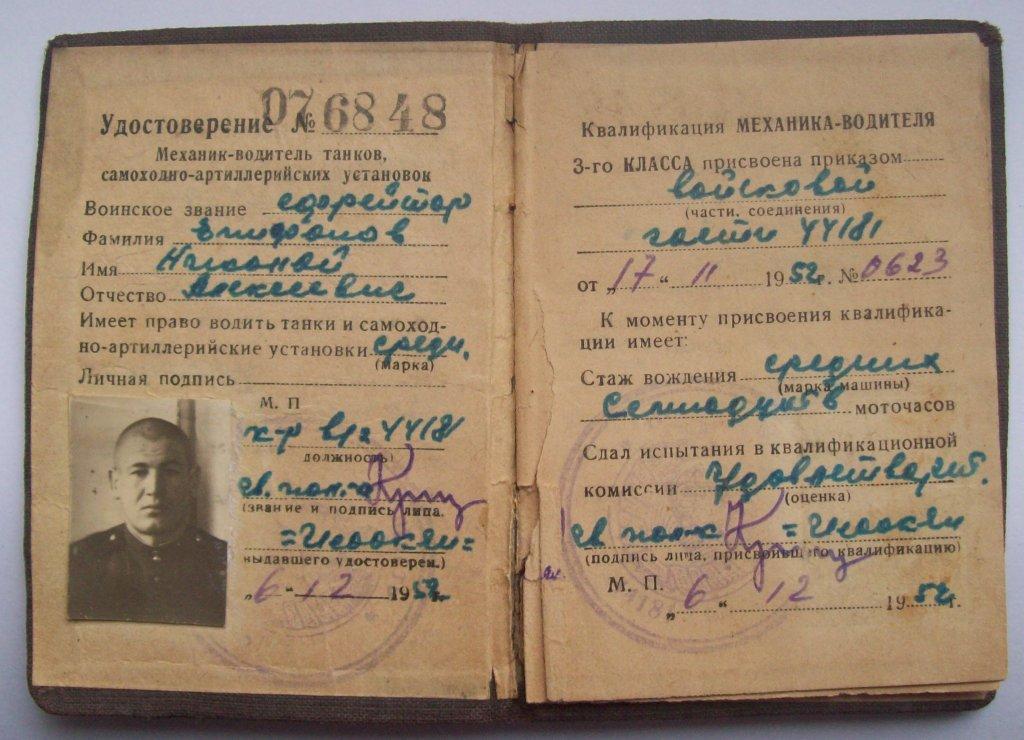 Удостоверение № 076848
Механик-водитель танков,
самоходно-артиллерийских установок
Воинское звание ефрейтор
Фамилия Епифанов
Имя Николай
Отчество Алексеевич
Имеет право водить танки и самоход-
но-артиллерийские установки средн.
(марка)
Личная подпись
М. П
к-р в/ч 44181
должность)
(звание и подпись лица,
выдавшего удостоверен.)
„6-12 1952г.
Квалификация МЕХАНИКА-ВОДИТЕЛЯ
3-го КЛАССА присвоена приказом
войсковой
(части, соединения)
части 44181
от „17“ 11 1952г. № 0623
К моменту присвоения квалифика-
ции имеет:
Стаж вождения средних
(марка машины)
моточасов
Сдал испытания в квалификационной
комиссии удовлетворит.
(оценка)
(подпись лица, присвоивш го квалификацию)
М. П.
„6“ 12 1952г.